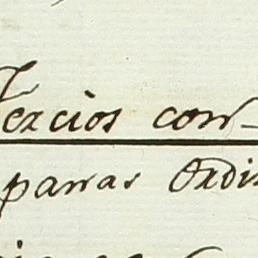 Tercios con-
parras Ordi